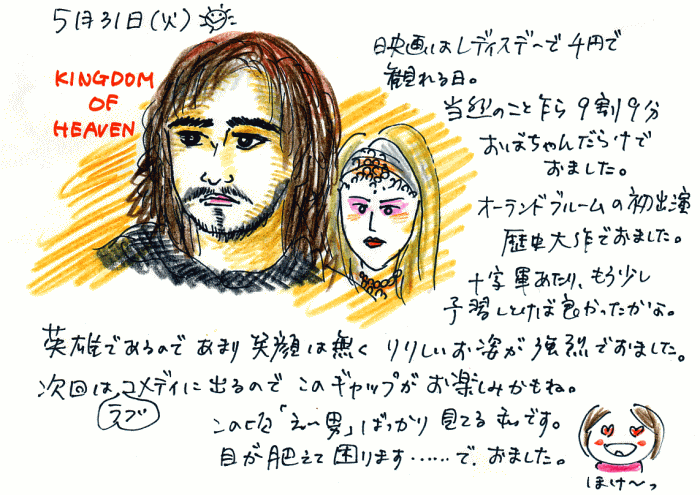 5月31日(火)
KINGDOM
OF
HEAVEN
日映画はレディスデーで 千円で
観れる日。
当然のこと乍ら 9割9分
おばちゃんだらけで
おました。
オーランドブルームの初出演
歴史大作でおました。
十字軍あたり、もう少し
予習しとけば良かったかな。
英雄であるので あまり 笑顔は無く りりしいお姿が 強烈でおました。
次回は コメディに出るので このギャップが お楽しみかもね。
ラブ
この頃「えー男」ばっかり 見てる 私です。
目が肥えて 困ります……で、おました。
ほけ〜っ